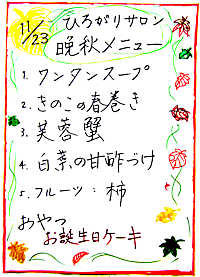 11/23
ひろがりサロン
晩秋メニュー
1. ワンタンスープ
2. きのこの春巻き
3. 芙蓉蟹
4. 白菜の甘酢づけ
5. フルーツ：柿
おやつ
お誕生日ケーキ